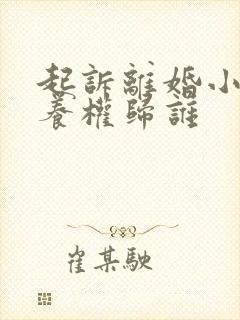 起訴離婚小
養權歸誰
崔某駛